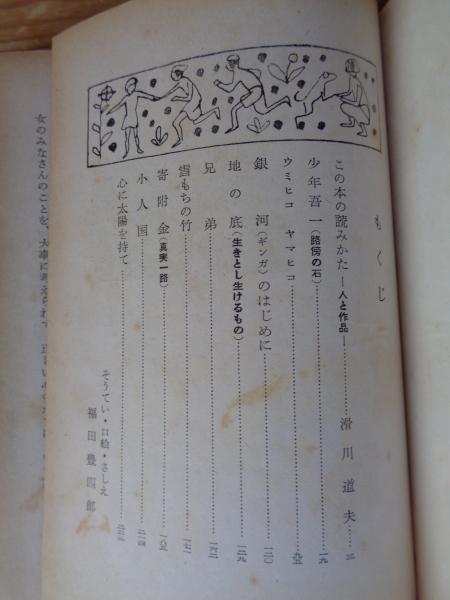 もくじ
この本の読みかた―人と作品―……滑川道夫…三
少年吾一(路傍の石)……一九
ウミヒコ ヤマヒコ……九五
銀河(ギンガ)のはじめに……一二〇
地の底(生きとし生けるもの)……一二九
兄弟……一六二
雪もちの竹……一七一
寄附金(真実一路)……一八五
小人国……二一四
心に太陽を持て……
そうてい・口絵・さしえ
福田豊四郎
女のみなさんのことを、大事に考えられて、正しい